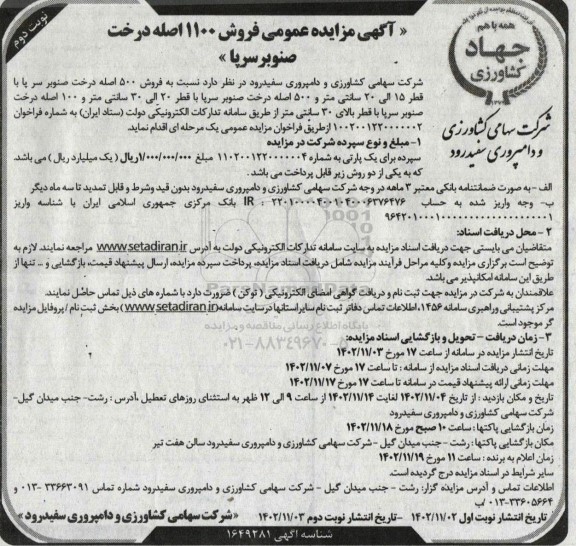 نوبت دوم
« آگهی مزایده عمومی فروش ۱۱۰۰ اصله درخت
صنوبر سرپا »
همه با هم
جهاد
کشاورزی
شرکت سهامی کشاورزی
و دامپروری سفیدرود
شرکت سهامی کشاورزی و دامپروری سفیدرود در نظر دارد نسبت به فروش ۵۰۰ اصله درخت صنوبر سر پا با
قطر ۱۵ الی ۲۰ سانتی متر و ۵۰۰ اصله درخت صنوبر سرپا با قطر ۲۰ الی ۳۰ سانتی متر و ۱۰۰ اصله درخت
صنوبر سرپا با قطر بالای ۳۰ سانتی متر از طریق سامانه تدارکات الکترونیکی دولت (ستاد ایران) به شماره فراخوان
۱۰۰۲۰۰۱۲۲۰۰۰۰۰۲ ازطریق فراخوان مزایده عمومی یک مرحله ای اقدام نماید.
۱- مبلغ و نوع سپرده شرکت در مزایده
سپرده برای یک پارتی به شماره ۱۱۰۲۰۰۱۲۲۰۰۰۰۰۴ مبلغ ۱/۰۰۰/۰۰۰/۰۰۰ریال ( یک میلیارد ریال ) می باشد.
که به یکی از دو روش زیر قابل پرداخت می باشد.
الف - به صورت ضمانتنامه بانکی معتبر ۳ ماهه در وجه شرکت سهامی کشاورزی و دامپروری سفیدرود بدون قید وشرط و قابل تمدید تا سه ماه دیگر
ب- وجه واریز شده به حساب IR : ۲۲۰۱۰۰۰۰۴۰۰۱۰۴۰۰۰۶۳۷۶۴۷۶ بانک مرکزی جمهوری اسلامی ایران با شناسه واریز
۲ - محل دریافت اسناد:
متقاضیان می بایستی جهت دریافت اسناد مزایده به سایت سامانه تدارکات الکترونیکی دولت به آدرس www.setadiran.ir مراجعه نمایند. لازم به
توضیح است برگزاری مزایده وکلیه مراحل فرآیند مزایده شامل دریافت اسناد مزایده، پرداخت سپرده مزایده، ارسال پیشنهاد قیمت، بازگشایی و ... تنها از
طریق این سامانه امکانپذیر می باشد.
علاقمندان به شرکت در مزایده جهت ثبت نام و دریافت گواهی امضای الکترونیکی ( توکن ) ضرورت دارد با شماره های ذیل تماس حاصل نمایند.
مرکز پشتیبانی وراهبری سامانه ۱۴۵۶، اطلاعات تماس دفاتر ثبت نام سایراستانها درسایت سامانه (www.setadiran.ir) بخش ثبت نام / پروفایل مزایده
گر موجود است.
۳- زمان دریافت - تحویل و بازگشایی اسناد مزایده:
تاریخ انتشار مزایده در سامانه از ساعت ۱۷ مورخ ۱۴۰۲/۱۱/۰۳
مهلت زمانی دریافت اسناد مزایده از سامانه : تا ساعت ۱۷ مورخ ۱۴۰۲/۱۱/۰۷
مهلت زمانی ارائه پیشنهاد قیمت در سامانه تا ساعت ۱۷ مورخ ۱۴۰۲/۱۱/۱۷
تاریخ و مکان بازدید : از تاریخ ۱۴۰۲/۱۱/۰۴ لغایت ۱۴۰۲/۱۱/۱۴ از ساعت ۹ الی ۱۲ ظهر به استثنای روزهای تعطیل .آدرس : رشت- جنب میدان گیل-
شرکت سهامی کشاورزی و دامپروری سفیدرود
زمان بازگشایی پاکتها: ساعت ۱۰ صبح مورخ ۱۴۰۲/۱۱/۱۸
مکان بازگشایی پاکتها : رشت - جنب میدان گیل - شرکت سهامی کشاورزی و دامپروری سفیدرود سالن هفت تیر
زمان اعلام به برنده : ساعت ۱۱ مورخ ۱۴۰۲/۱۱/۱۹
سایر شرایط در اسناد مزایده درج گردیده است.
اطلاعات تماس و آدرس مزایده گزار: رشت - جنب میدان گیل - شرکت سهامی کشاورزی و دامپروری سفیدرود شماره تماس ۳۳۶۶۳۰۹۱-۰۱۳ و
۰۱۳-۳۳۶۰۵۶۶۴
تاریخ انتشار نوبت اول ۱۴۰۲/۱۱/۰۲ - تاریخ انتشار نوبت دوم ۱۴۰۲/۱۱/۰۳
«شرکت سهامی کشاورزی و دامپروری سفیدرود »
شناسه آگهی ۱۶۴۹۲۸۱
پایگاه اطلاع رسانی مناقصه و مزایده
۰۲۱-۸۸۳۴۹۶۷۰-۵